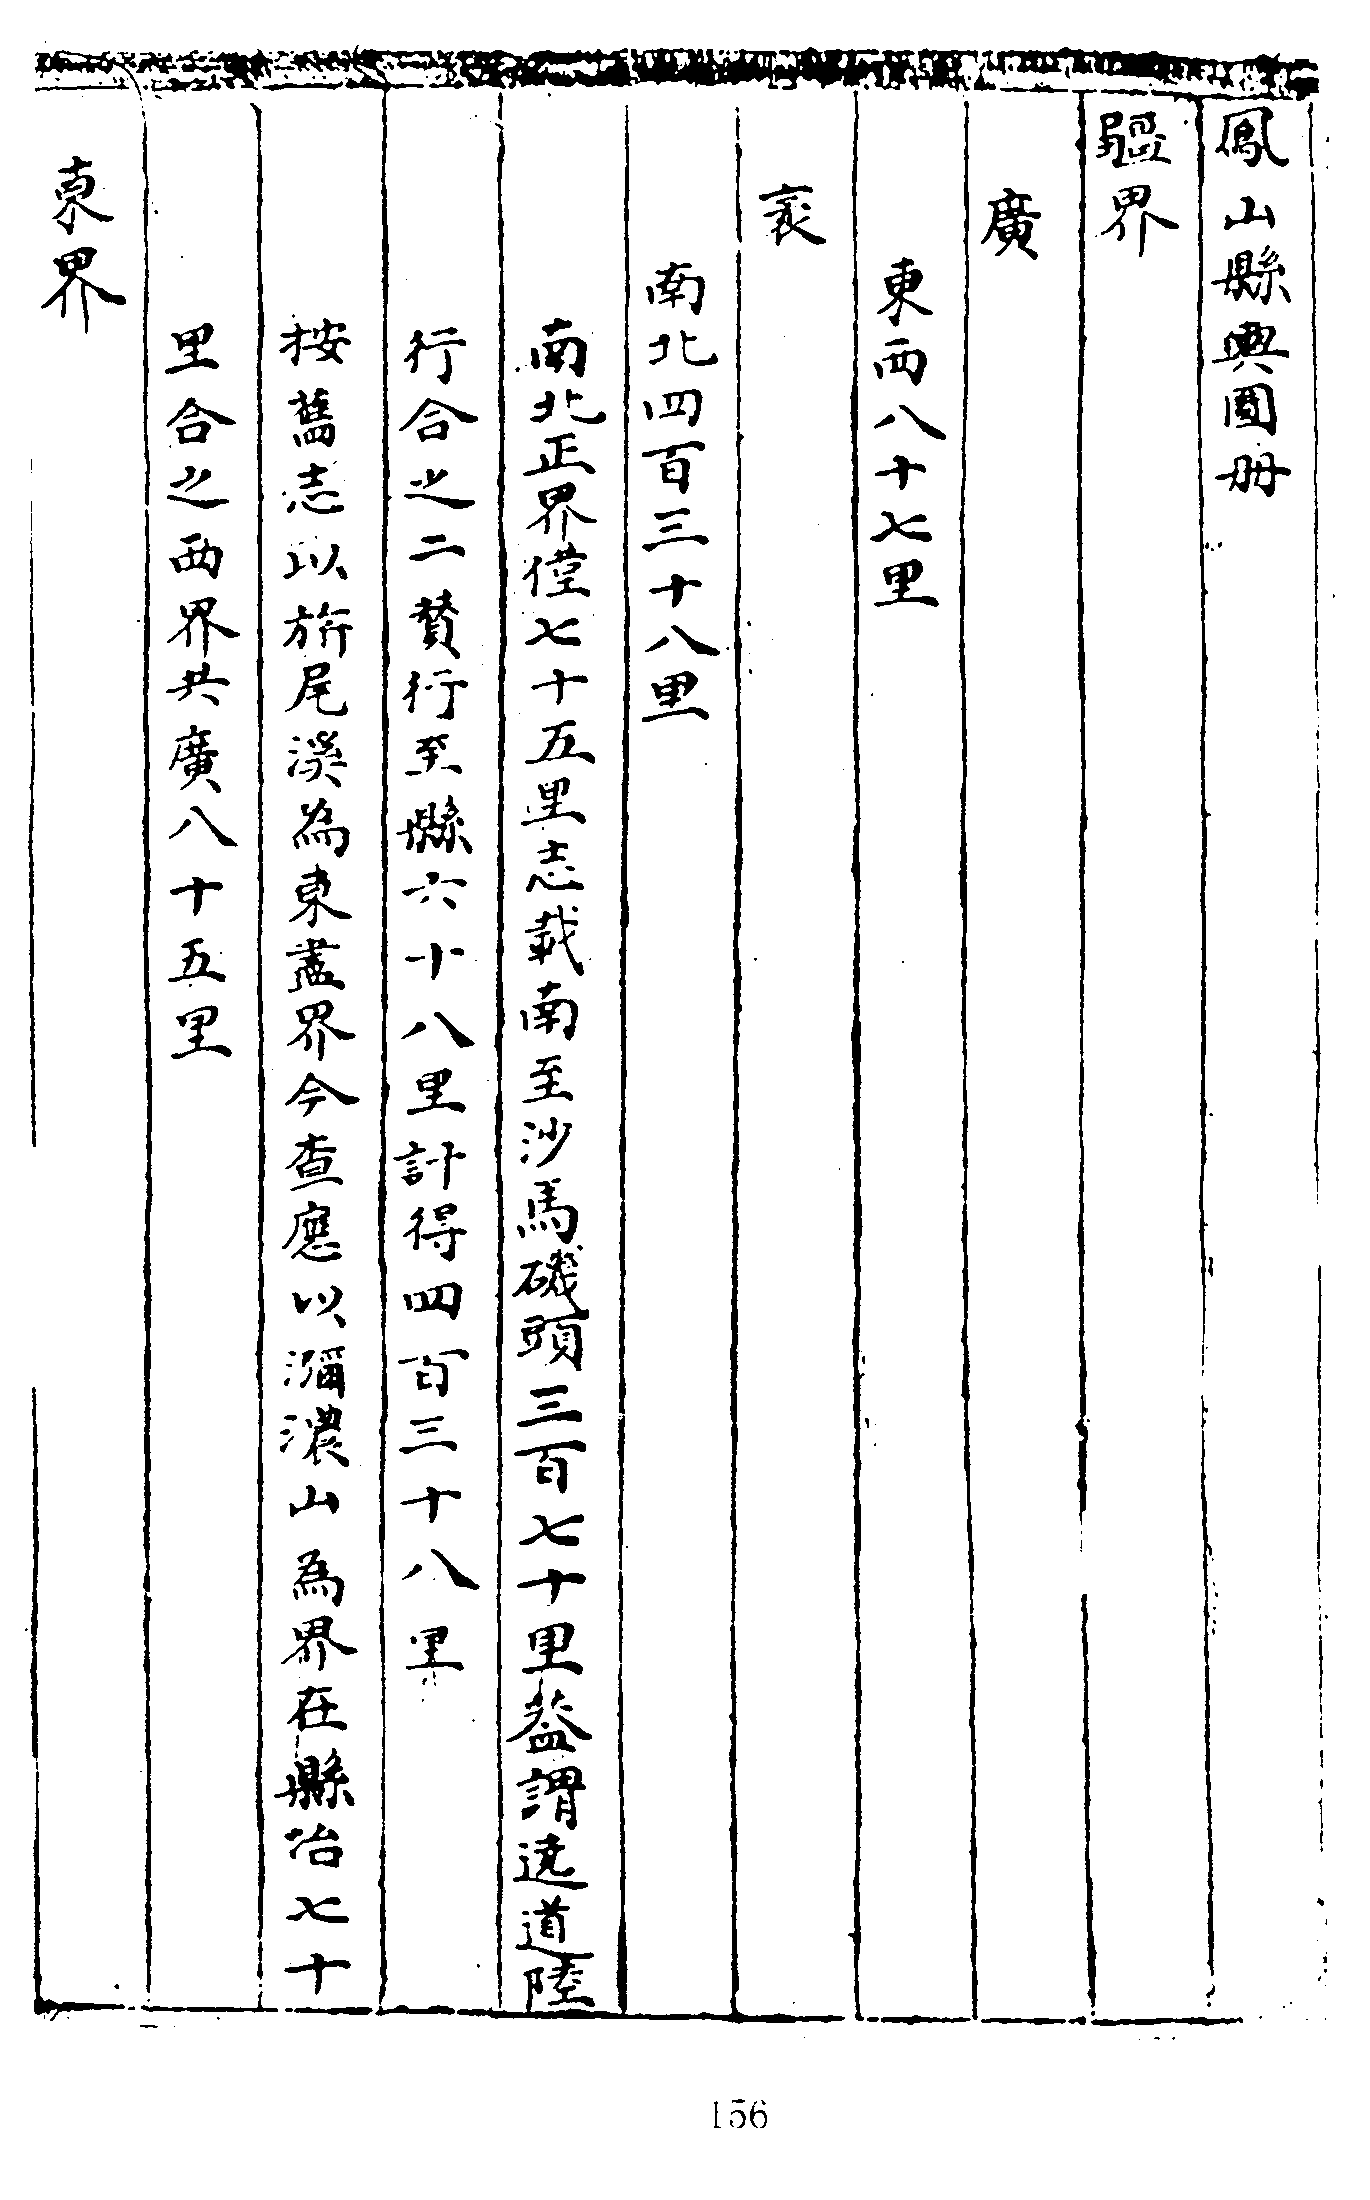 鳳山縣輿圖册
疆界
廣
東西八十七里
袤
南北四百三十八里
南北正界僅七十五里志載南至沙馬磯頭三百七十里蓋謂遶道陸
行合之二賛行至縣六十八里計得四百三十八里
按舊志以旂尾溪為東盡界今查應以瀰濃山為界在縣治七十
里合之西界共廣八十五里
東界
156